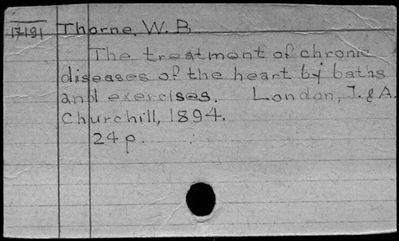 17181 Thorne, W. B
The treatment of chronic
diseases of the heart by baths
and exercises. London, J. & A.
Churchill, 1894.
24 p.